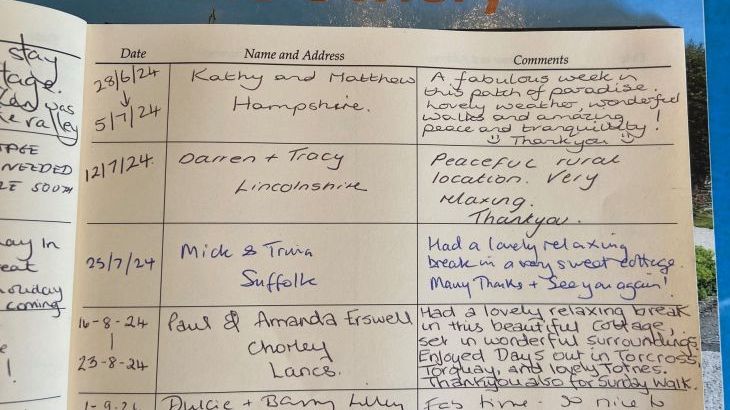 stay
was
valley
NEEDED
SOUTH
in
holiday
coming
!
Date
Name and Address
Comments
28/6/24
↓
5/7/24
Kathy and Matthew
Hampshire.
A fabulous week in
this patch of paradise.
Lovely weather, wonderful
walks and amazing
peace and tranquility!
Thankyou
12/7/24
Darren + Tracy
Lincolnshire
Peaceful rural
location. Very
relaxing.
Thankyou.
25/7/24
Mick &
Suffolk
Had a lovely relaxing
break in a very sweet cottage.
Many Thanks + See you again!
16-8-24
|
23-8-24
Paul & Amanda Erswell
Chorley
Lancs.
Had a lovely relaxing break
in this beautiful cottage,
set in wonderful surroundings
Enjoyed Days out in Torcross,
Torquay, and lovely Totnes.
Thankyou also for Sunday Walk.
Dulcie + Barry
time - so nice to